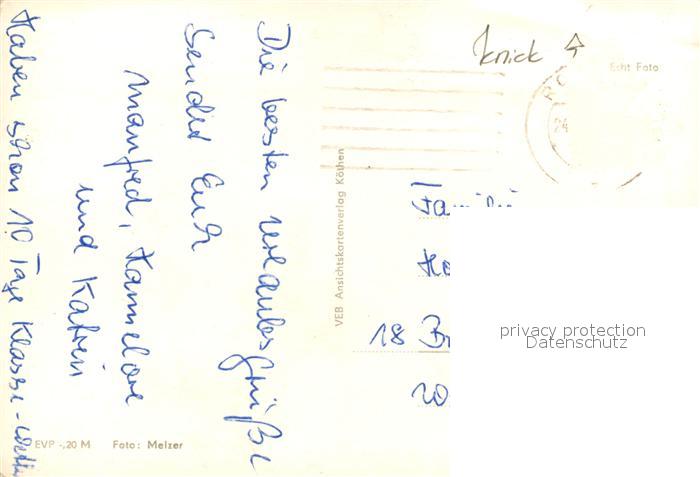 Die besten Urlaubsgrüße
sendet Euch
Manfred, Hannelore
und Katrin
Haben schon 10 Tage Klasse-
knick
Echt Foto
VEB Ansichtskartenverlag Köthen
18
privacy protection
Datenschutz
EVP -,20 M Foto: Melzer